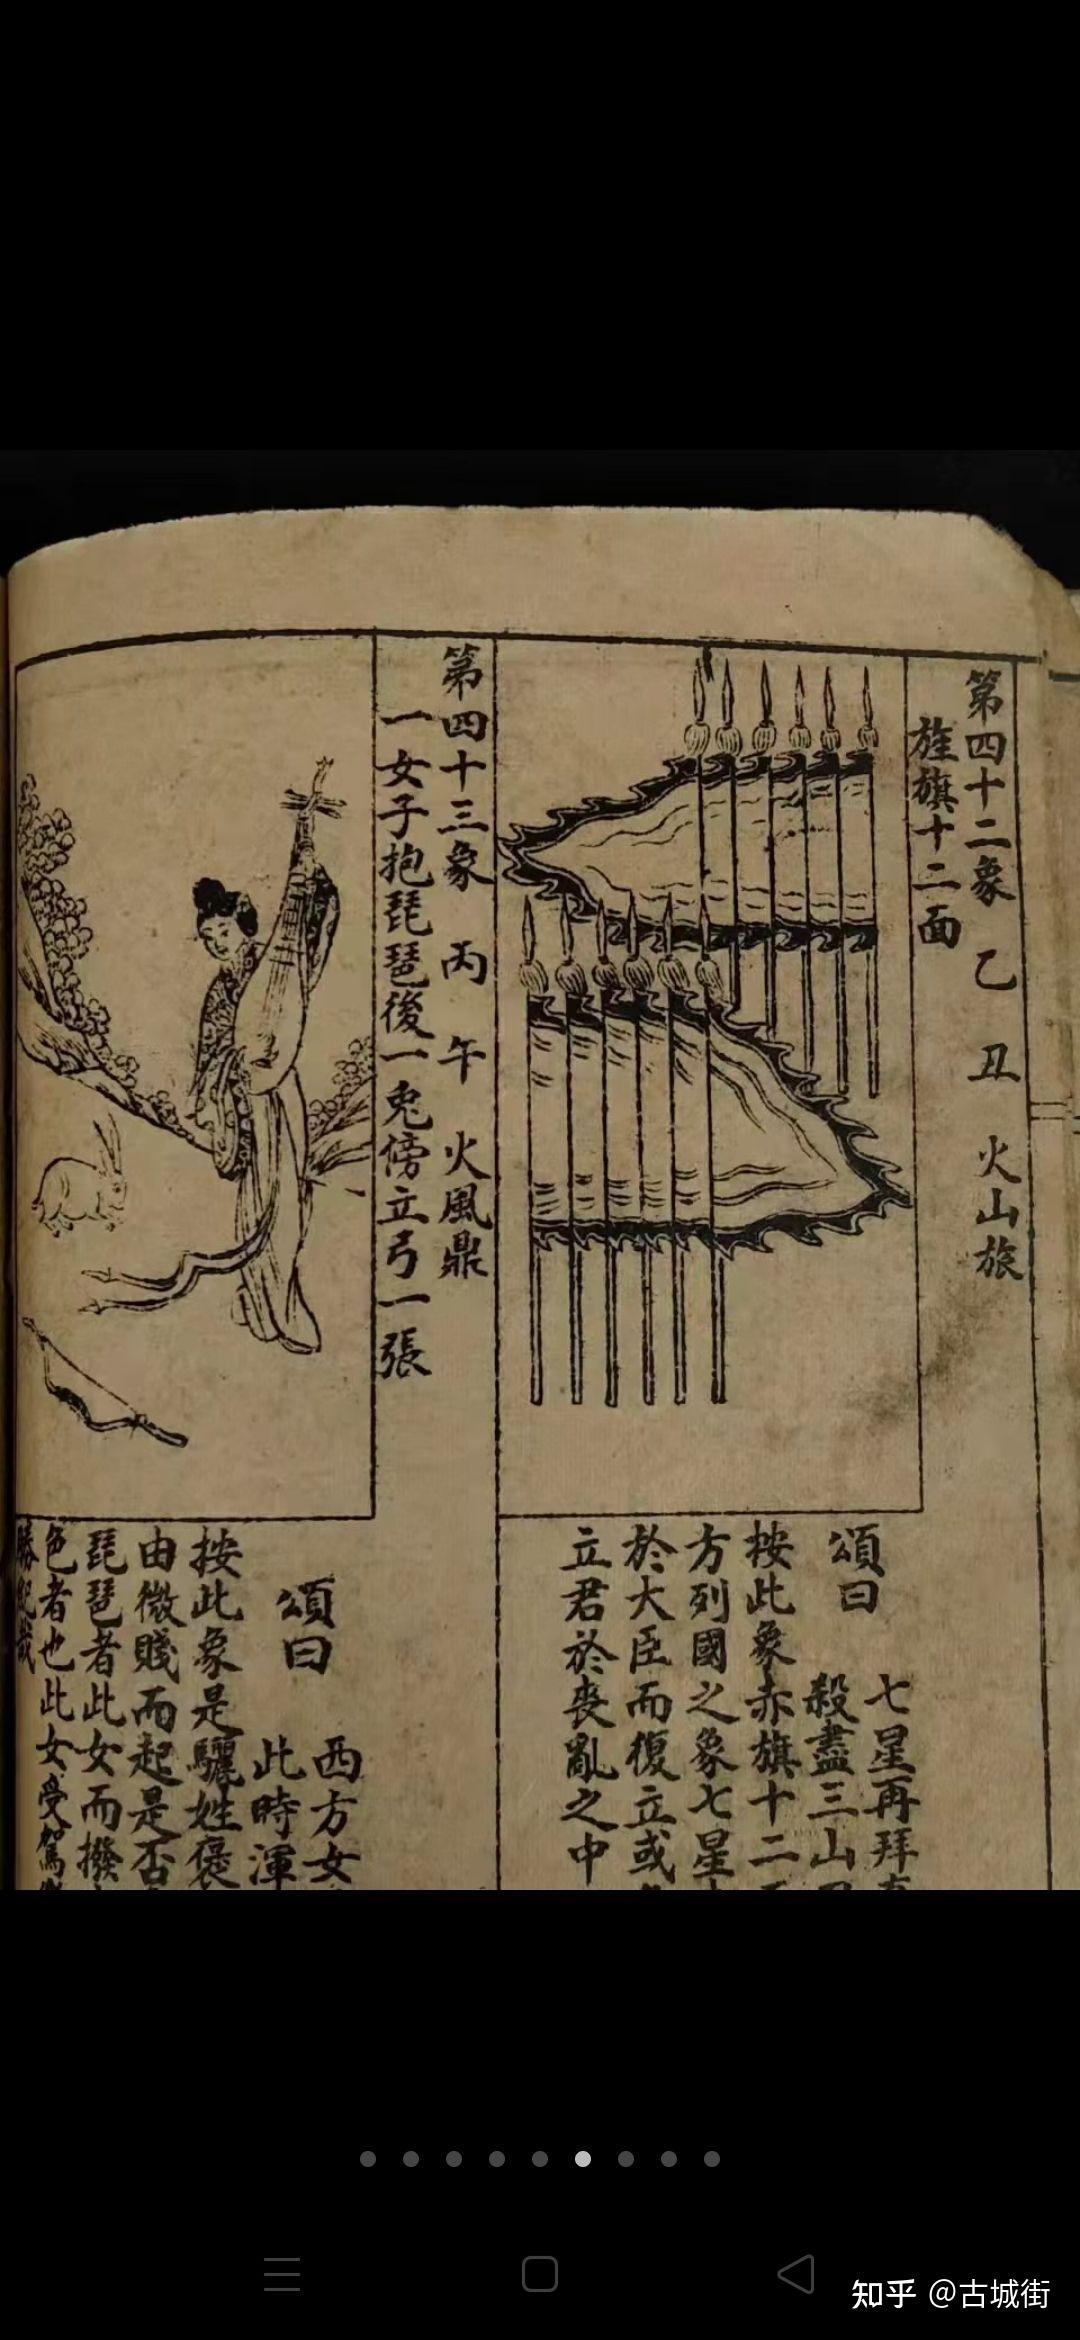 第四十二象　乙　丑　火山旅
旌旗十二面
七星再拜
殺盡三山
頌曰
按此象赤旗十二
方列國之象七星
於大臣而復立或
立君於喪亂之中
第四十三象　丙　午　火風鼎
一女子抱琵琶後一兎傍立弓一張
西方女
此時渾
頌曰
按此象是驪姓褒
由微賤而起是否
琵琶者此女而撥
色者也此女受駕
知乎 @古城街